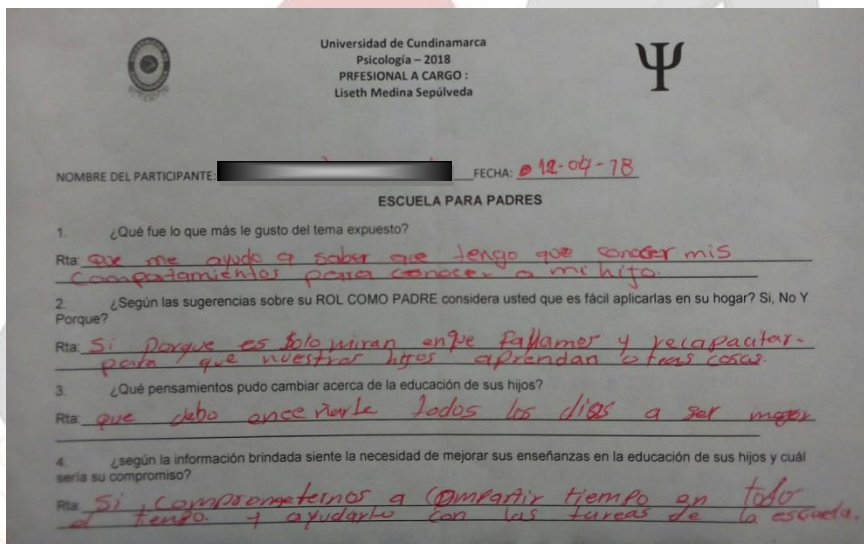 Universidad de Cundinamarca
Psicología – 2018
PRFESIONAL A CARGO :
Liseth Medina Sepúlveda
Ψ
NOMBRE DEL PARTICIPANTE: FECHA: 12-04-18
ESCUELA PARA PADRES
1. ¿Qué fue lo que más le gusto del tema expuesto?
Rta: Que me ayudo a saber que tengo que conocer mis
compadamientos para conocer a mi hijo.
2. ¿Según las sugerencias sobre su ROL COMO PADRE considera usted que es fácil aplicarlas en su hogar? Si, No Y
Porque?
Rta: Si porque es solo miran enque fallamos y recapacitar.
para que nuestros hijos aprendan otras cosas.
3. ¿Qué pensamientos pudo cambiar acerca de la educación de sus hijos?
Rta: que debo enceñarle todos los dias a ser mejor
4. ¿según la información brindada siente la necesidad de mejorar sus enseñanzas en la educación de sus hijos y cuál
sería su compromiso?
Rta: Si, comprometernos a compartir tiempo en todo
el tiempo. y ayudarlo con las tareas de la escuela.